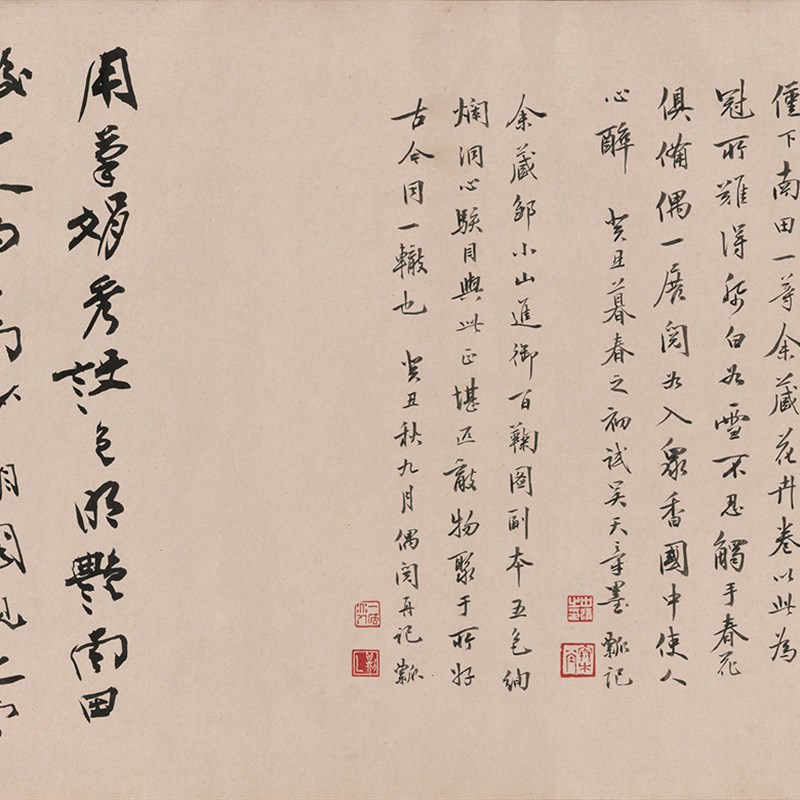 僅下南田一等余藏花卉卷以此為
冠所難得紙白如雪不忍觸手春花
俱備偶一展閱如入眾香國中使人
心醉　癸丑暮春之初試吳天章墨　瓢記
余藏鄒小山進御百鞠圖副本五色絢
爛洞心駭目與此正堪匹敵物聚于所好
古今同一轍也　癸丑秋九月偶閱再記　瓢
用筆娟秀設色明艷南田